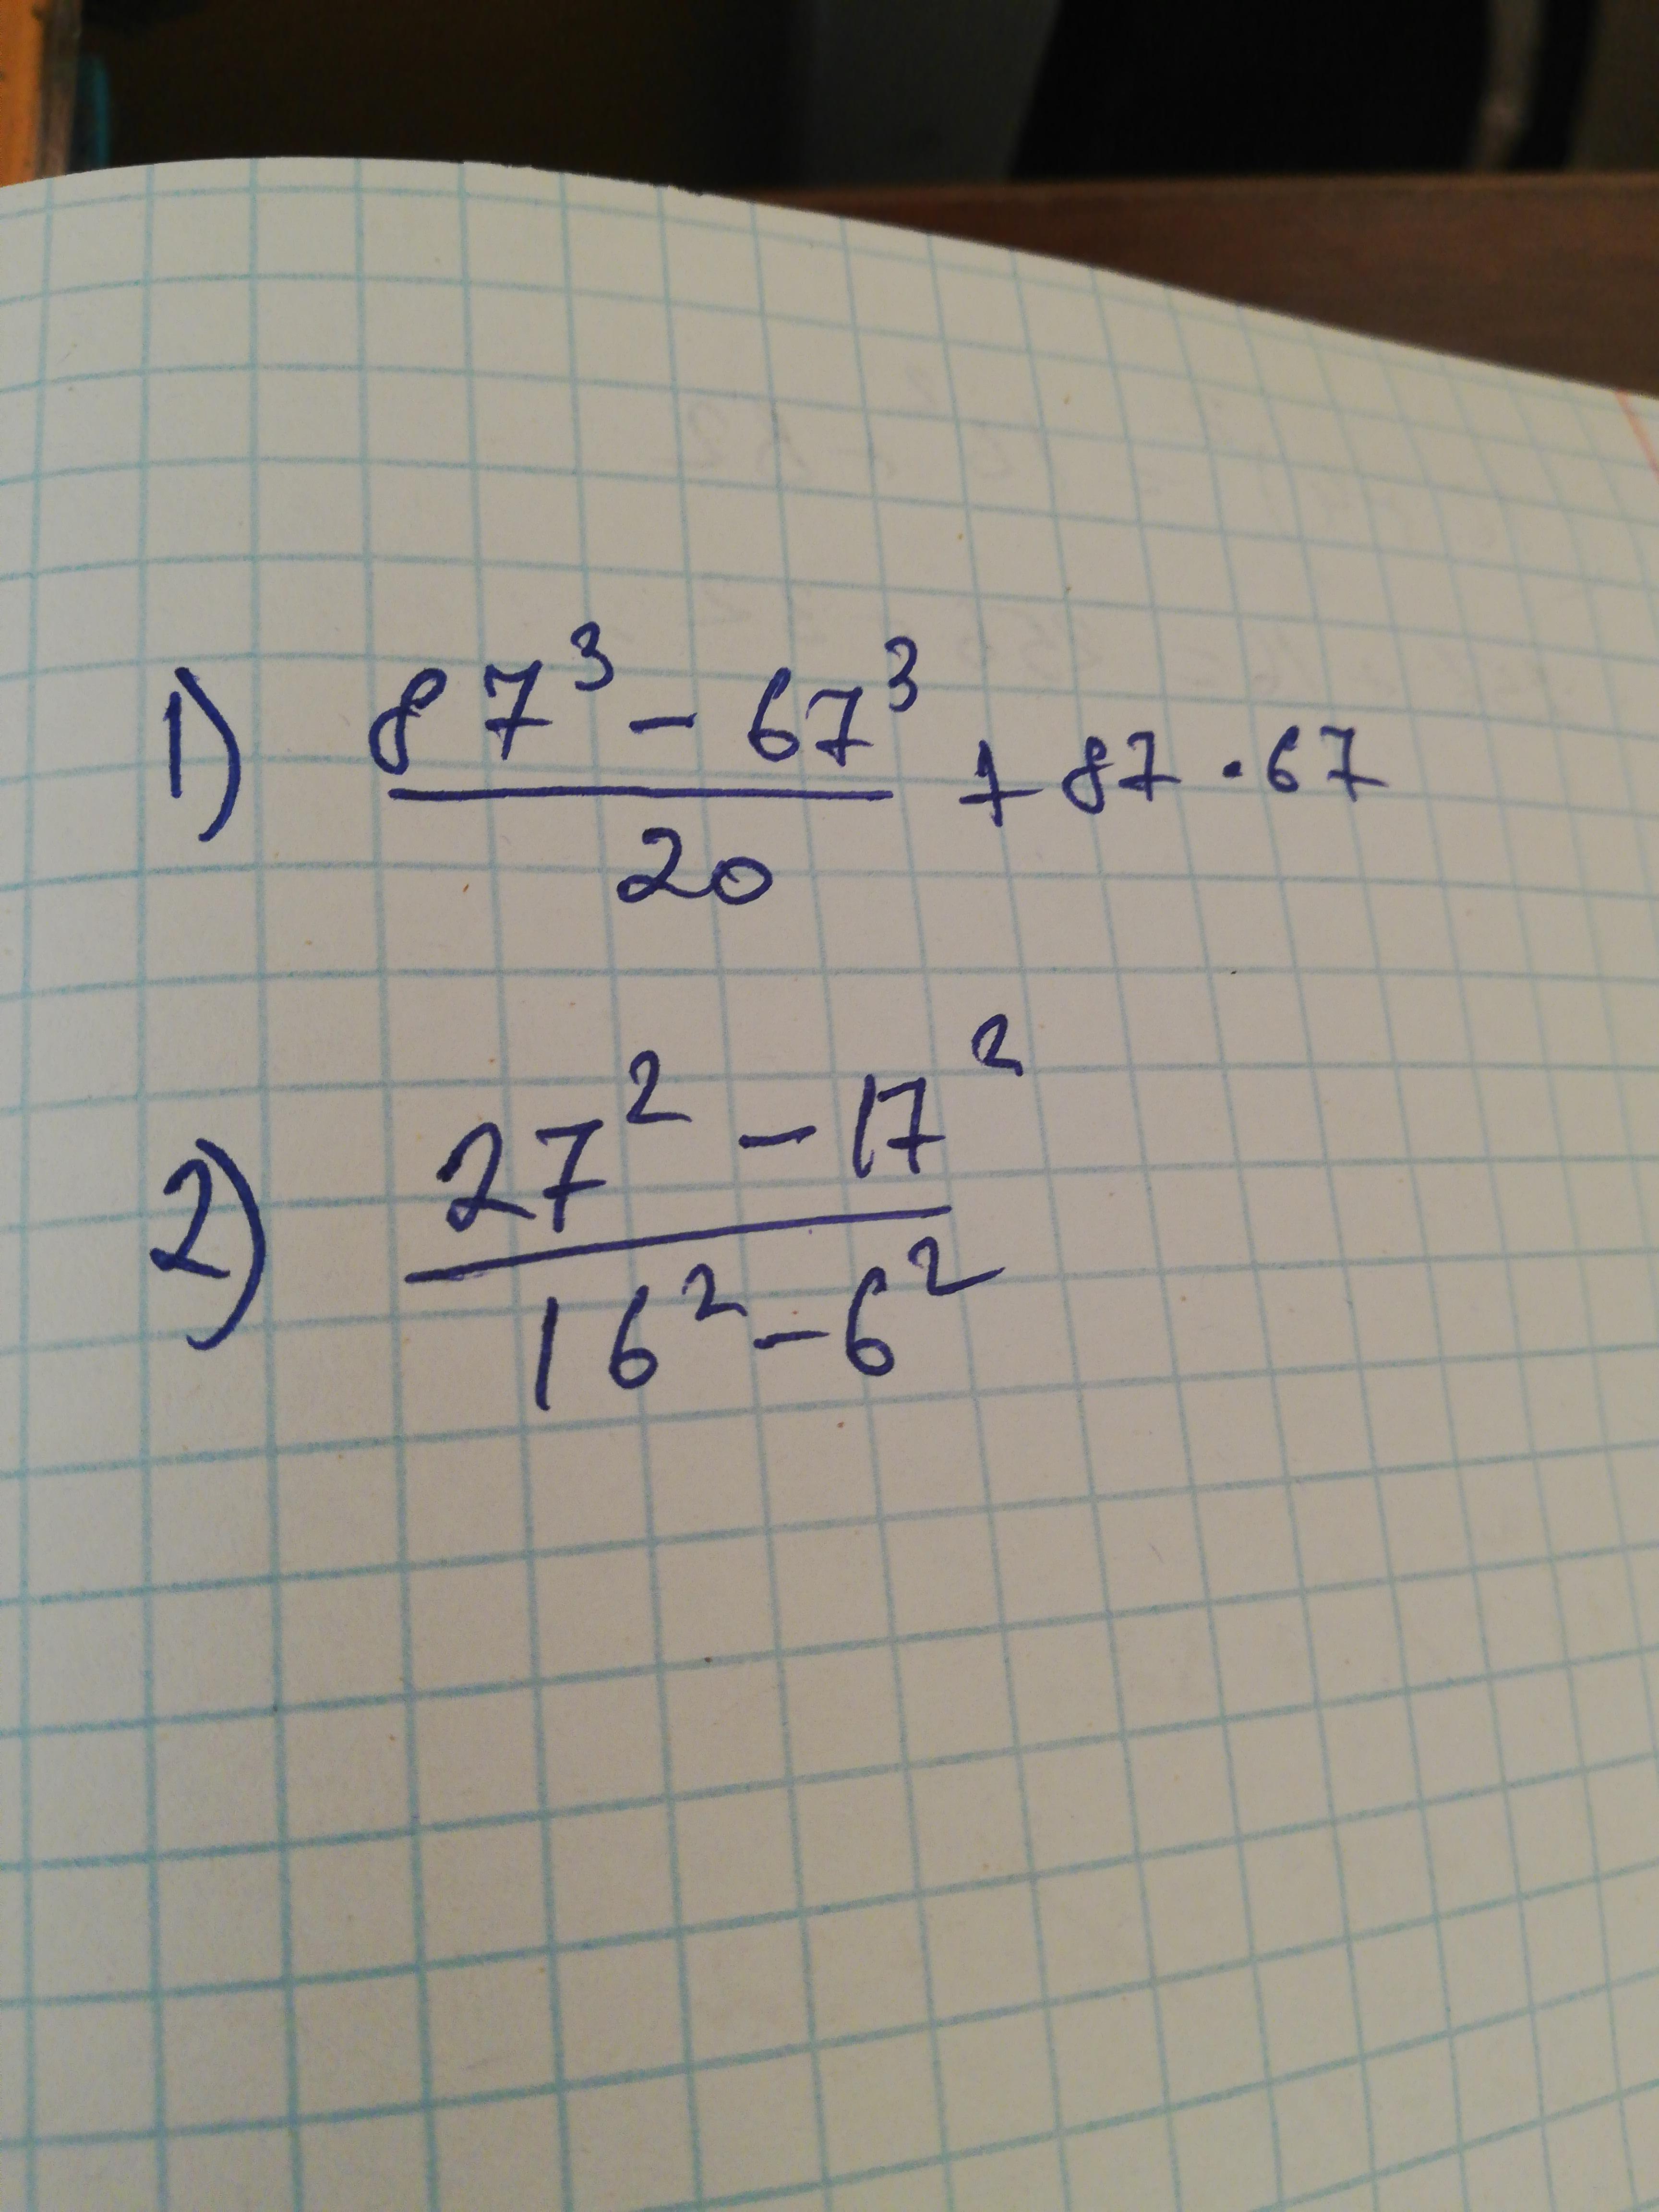 1) 87³ - 67³ / 20 + 87 · 67
2) 27² - 17² / 16² - 6²